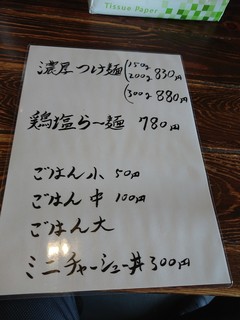 Tissue Paper
濃厚つけ麺 150g 200g 830円
300g 880円
鶏塩らー麺 780円
ごはん小 50円
ごはん中 100円
ごはん大
ミニチャーシュー丼 300円